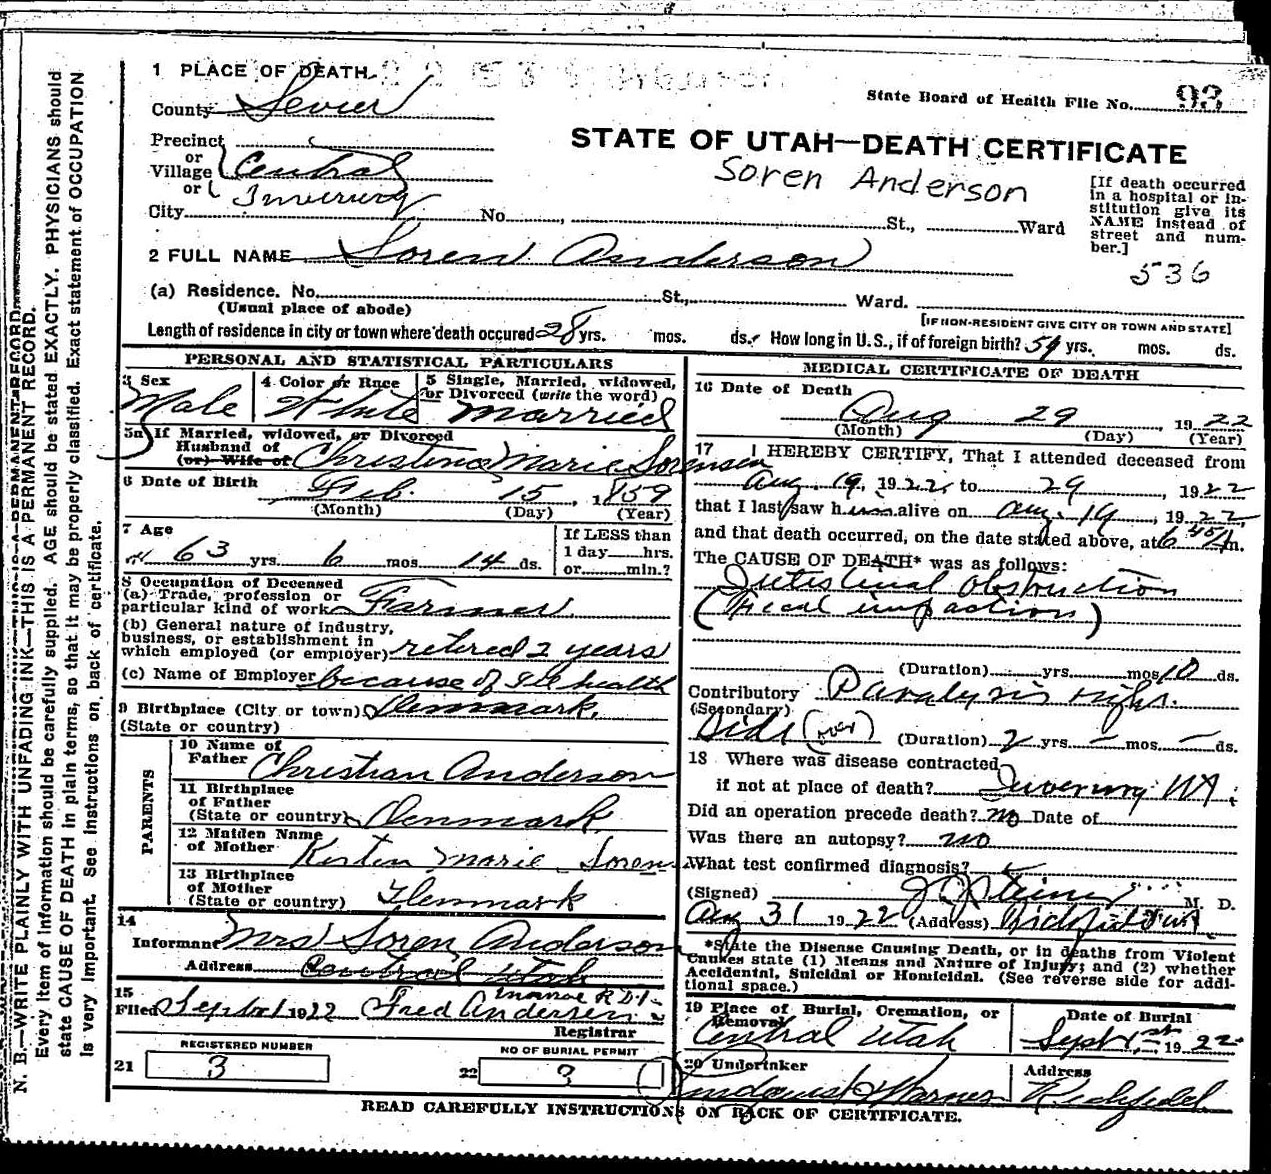 1 PLACE OF DEATH
County Sevier
State Board of Health File No. 93
Precinct
or
Village Central
or Inverury
City No. , St., Ward
STATE OF UTAH—DEATH CERTIFICATE
Soren Anderson
[If death occurred
in a hospital or in-
stitution give its
NAME instead of
street and num-
ber.]
536
2 FULL NAME Soren Anderson
(a) Residence. No. St., Ward.
(Usual place of abode)
[IF NON-RESIDENT GIVE CITY OR TOWN AND STATE]
Length of residence in city or town where death occured 28 yrs. mos. ds. How long in U.S., if of foreign birth? 54 yrs. mos. ds.
PERSONAL AND STATISTICAL PARTICULARS
3 Sex
Male
4 Color or Race
White
5 Single, Married, widowed,
or Divorced (write the word)
married
5a If Married, widowed, or Divorced
Husband of
(or) Wife of Christina Marie Sorensen
6 Date of Birth
Feb. 15, 1859
(Month) (Day) (Year)
7 Age
63 yrs. 6 mos. 14 ds.
If LESS than
1 day hrs.
or min.?
8 Occupation of Deceased
(a) Trade, profession or
particular kind of work Farmer
(b) General nature of industry,
business, or establishment in
which employed (or employer) retired 2 years
(c) Name of Employer because of ill health
9 Birthplace (City or town) Denmark.
(State or country)
PARENTS
10 Name of
Father Christian Anderson
11 Birthplace
of Father
(State or country) Denmark
12 Maiden Name
of Mother Kersten Marie Soren
13 Birthplace
of Mother
(State or country) Denmark
14
Informant Mrs Soren Anderson
Address Central Utah
Monroe R.D.1
15
Filed Sept 1 1922 Fred Andersen
Registrar
REGISTERED NUMBER
21 3
NO OF BURIAL PERMIT
22 3
MEDICAL CERTIFICATE OF DEATH
16 Date of Death
Aug 29, 1922
(Month) (Day) (Year)
17 I HEREBY CERTIFY, That I attended deceased from
Aug. 19, 1922 to 29, 1922
that I last saw him alive on Aug. 19, 1922,
and that death occurred, on the date stated above, at 6 45 A m.
The CAUSE OF DEATH* was as follows:
Intestinal obstruction
(Fecal impaction)
(Duration) yrs. mos 10 ds.
Contributory Paralysis right.
(Secondary)
Side (over) (Duration) 2 yrs. – mos. – ds.
18 Where was disease contracted
if not at place of death? Inverury Ut.
Did an operation precede death? no Date of
Was there an autopsy? no
What test confirmed diagnosis?
(Signed) M. D.
Aug 31 1922 (Address) Richfield Utah
*State the Disease Causing Death, or in deaths from Violent
Causes state (1) Means and Nature of Injury; and (2) whether
Accidental, Suicidal or Homicidal. (See reverse side for addi-
tional space.)
19 Place of Burial, Cremation, or
Removal
Central Utah
Date of Burial
Sept 1st, 1922
20 Undertaker
Address
Richfield
READ CAREFULLY INSTRUCTIONS ON BACK OF CERTIFICATE.
N. B.—WRITE PLAINLY WITH UNFADING INK—THIS IS A PERMANENT RECORD.
Every item of information should be carefully supplied. AGE should be stated EXACTLY. PHYSICIANS should
state CAUSE OF DEATH in plain terms, so that it may be properly classified. Exact statement of OCCUPATION
is very important. See instructions on back of certificate.